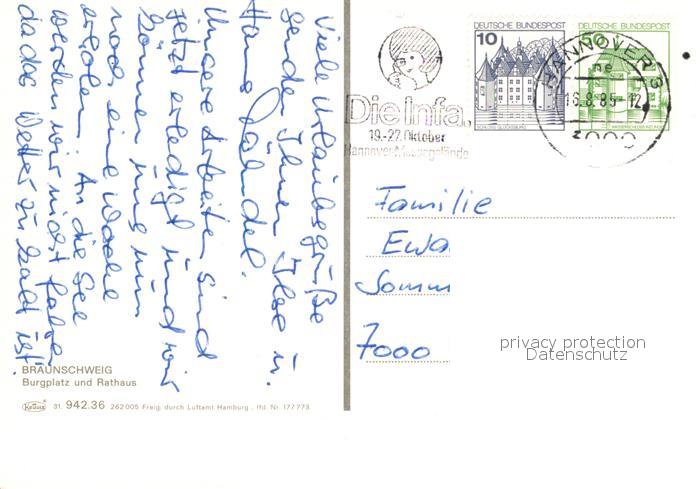 Viele Urlaubsgrüße
senden Ihnen Ilse u.
Hans
Unsere Arbeiten sind
jetzt erledigt und wir
können uns nun
noch eine Woche
erholen. An die See
werden wir nicht fahren
da das Wetter zu kalt ist.
BRAUNSCHWEIG
Burgplatz und Rathaus
Krüger 31 942.36 262005 Freig. durch Luftamt Hamburg, lfd. Nr. 177773
Die Infa.
19.-27. Oktober
Hannover Messegelände
DEUTSCHE BUNDESPOST
10
SCHLOSS GLÜCKSBURG
DEUTSCHE BUNDESPOST
50
HANNOVER 3
16.8.85.12
3000
Familie
Ewa
7000
privacy protection
Datenschutz